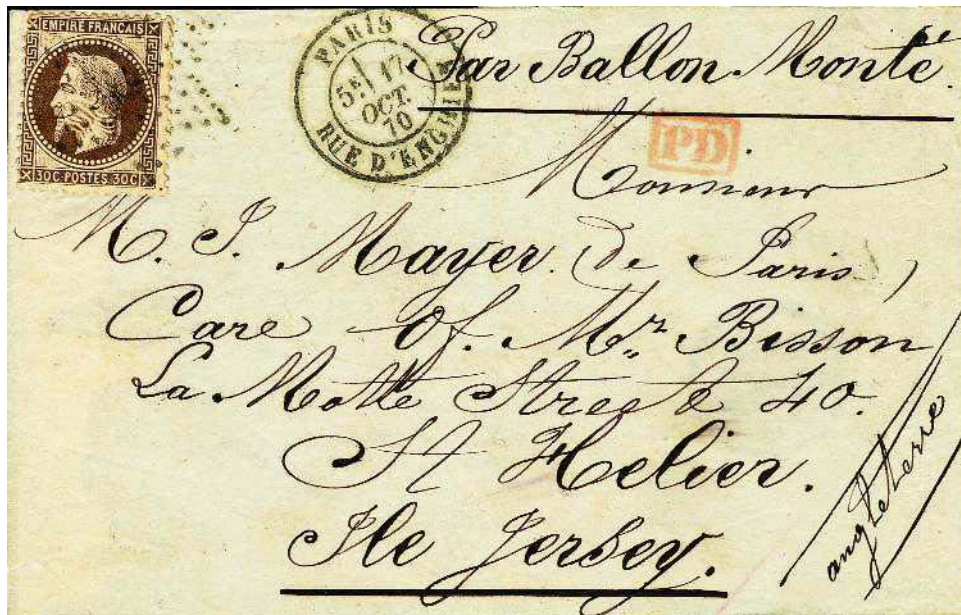 EMPIRE FRANÇAIS
30C POSTES 30C
PARIS
5E/ 17
OCT.
70
RUE D'ENGHIEN
Par Ballon Monté
PD
Monsieur
M. J. Mayer. de Paris,
Care Of. Mr. Bisson
La Motte Street 40.
St Helier.
Ile Jersey.
angleterre